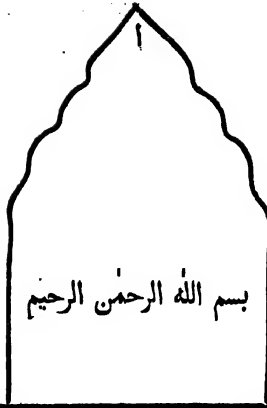 أ
بسم اللّٰه الرحمٰن الرحيم